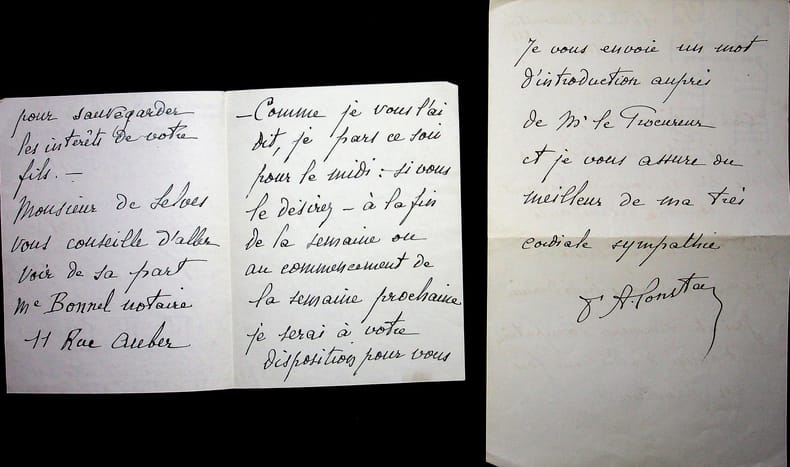 pour sauvegarder
les intérêts de votre
fils. —
Monsieur de Selves
vous conseille d'aller
voir de sa part
Me Bonnel notaire
11 Rue Auber
— Comme je vous l'ai
dit, je pars ce soir
pour le midi : si vous
le désirez – à la fin
de la semaine ou
au commencement de
la semaine prochaine
je serai à votre
disposition pour vous
Je vous envoie un mot
d'introduction auprès
de Mr le Procureur
et je vous assure du
meilleur de ma très
cordiale sympathie
Dr A. Constan